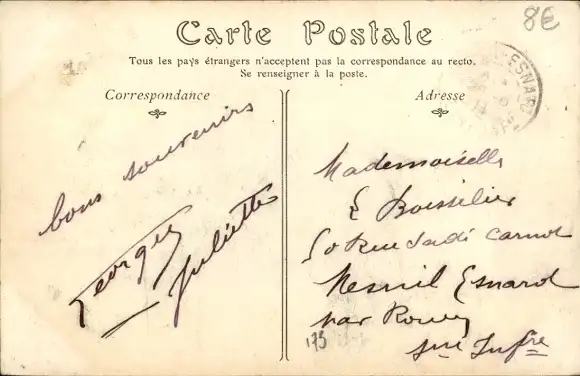 8€
Carte Postale
Tous les pays étrangers n'acceptent pas la correspondance au recto.
Se renseigner à la poste.
Correspondance
Adresse
ESNARD
bons souvenirs
Georges
Juliette
Mademoiselle
E Boissilier
Rue Sadi Carnot
Mesnil Esnard
par Rouen
Sne Infre
175